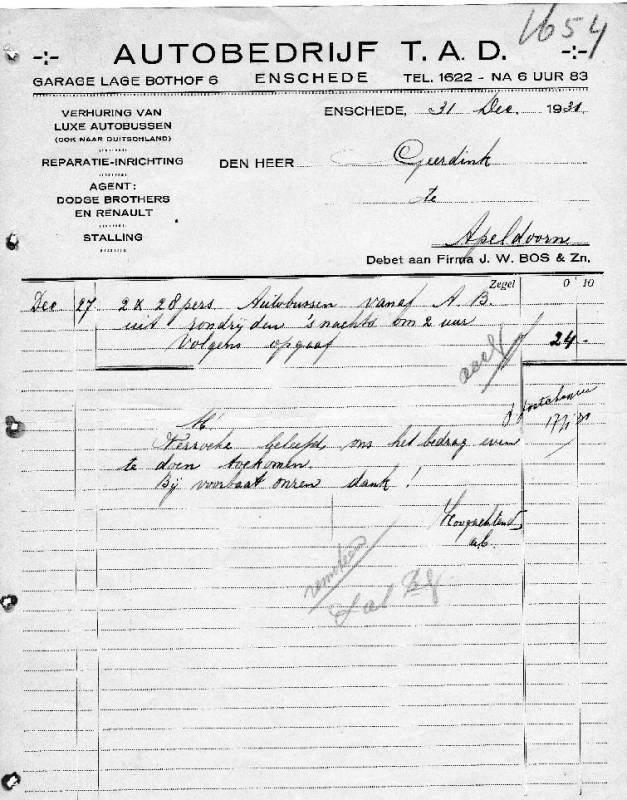 1654
-:- AUTOBEDRIJF T. A. D. -:-
GARAGE LAGE BOTHOF 6 ENSCHEDE TEL. 1622 - NA 6 UUR 83
VERHURING VAN
LUXE AUTOBUSSEN
(OOK NAAR DUITSCHLAND)
REPARATIE-INRICHTING
AGENT:
DODGE BROTHERS
EN RENAULT
STALLING
ENSCHEDE, 31 Dec. 1930
DEN HEER Geerdink
te
Apeldoorn
Debet aan Firma J. W. BOS & Zn.
Zegel 0 10
Dec 27 2 x 28 pers Autobussen vanaf A. B.
uit rondrijden 's nachts om 2 uur
volgens opgaaf 24 -
M.
Verzoeke beleefd, ons het bedrag even
te doen toekomen.
Bij voorbaat onzen dank!
Hoogachtend